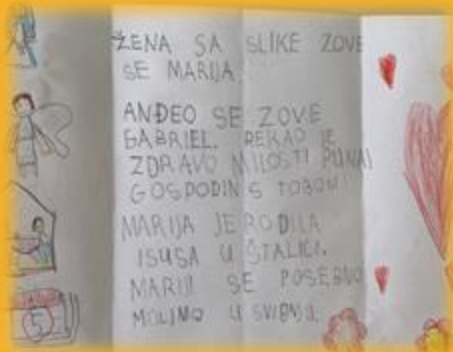 ŽENA SA SLIKE ZOVE
SE MARIJA.
ANĐEO SE ZOVE
GABRIEL. REKAO JE
ZDRAVO MILOSTI PUNA!
GOSPODIN S TOBOM!
MARIJA JE RODILA
ISUSA U ŠTALICI.
MARIJI SE POSEBNO
MOLIMO U SVIBNJU.
5